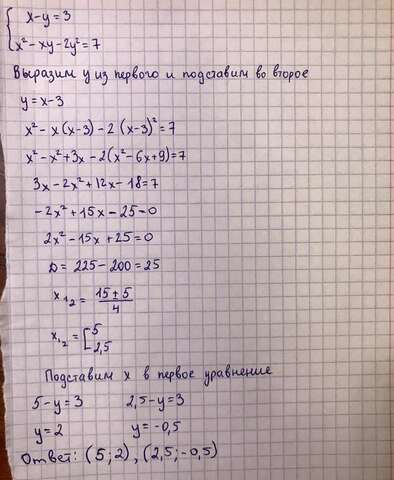 x-y=3
x²-xy-2y²=7
Выразим y из первого и подставим во второе
y=x-3
x²-x(x-3)-2(x-3)²=7
x²-x²+3x-2(x²-6x+9)=7
3x-2x²+12x-18=7
-2x²+15x-25=0
2x²-15x+25=0
D=225-200=25
x₁,₂=(15±5)/4
x₁,₂=[5
2,5
Подставим x в первое уравнение
5-y=3 2,5-y=3
y=2 y=-0,5
Ответ: (5;2),(2,5;-0,5)